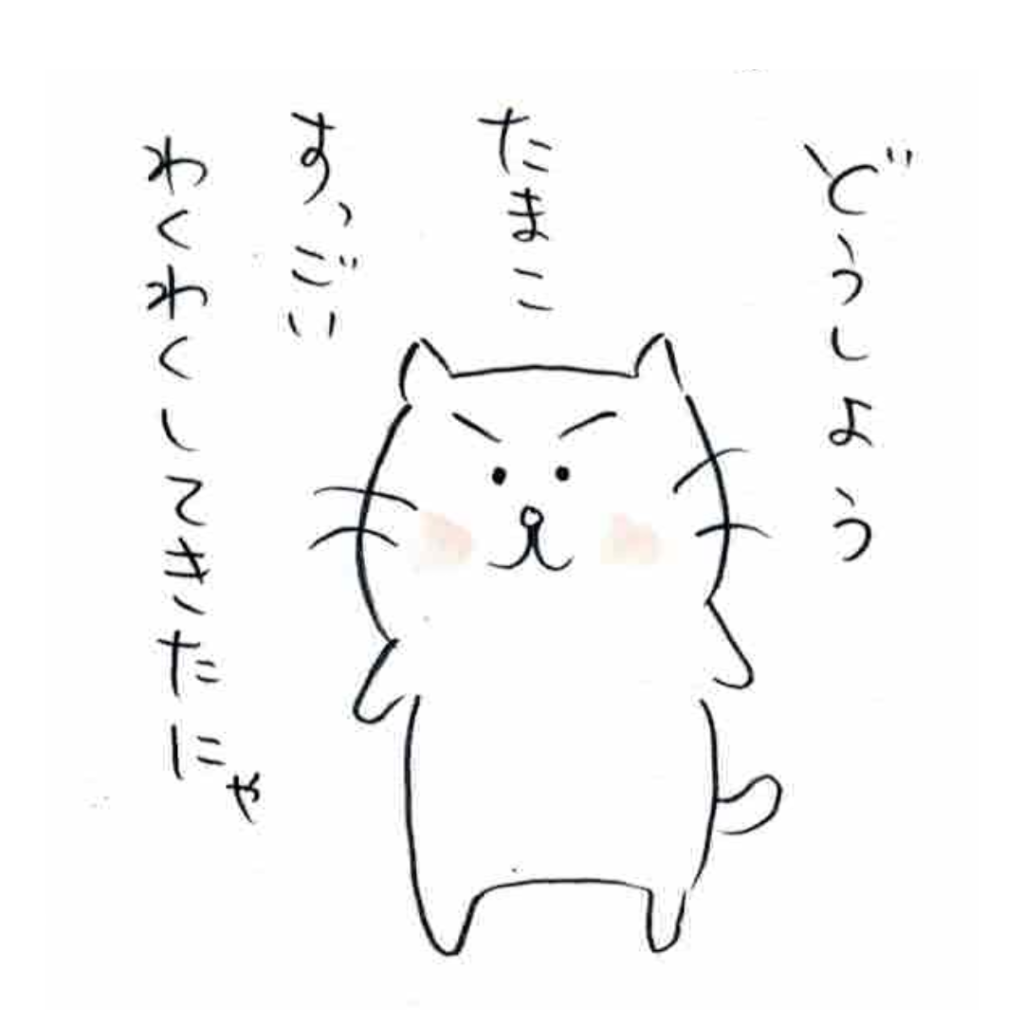 どうしよう
たまこ
すっごい
わくわくしてきたにゃ